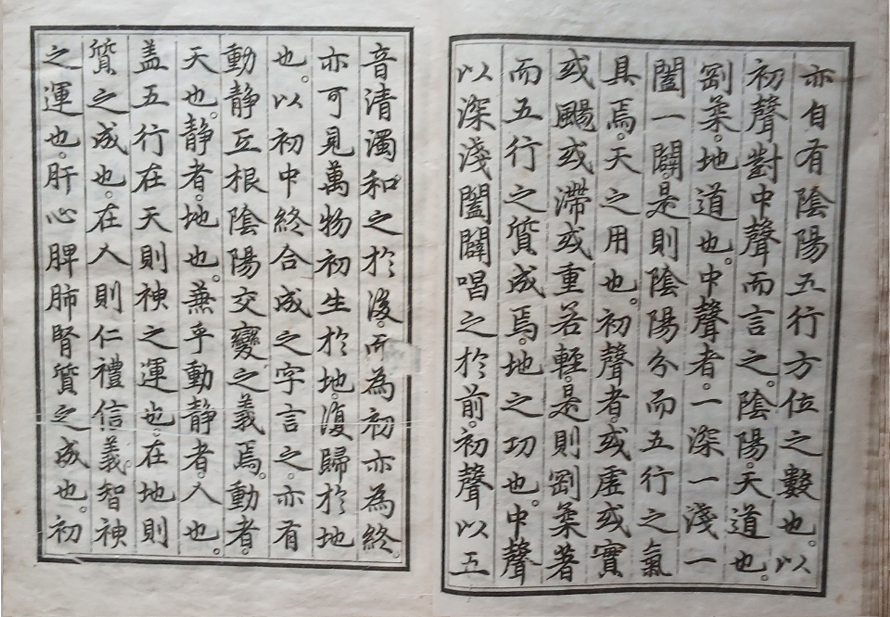 亦自有陰陽五行方位之數也。以
初聲對中聲而言之。陰陽。天道也。
剛柔。地道也。中聲者。一深一淺一
闔一闢。是則陰陽分而五行之氣
具焉。天之用也。初聲者。或虛或實
或颺或滯或重若輕。是則剛柔著
而五行之質成焉。地之功也。中聲
以深淺闔闢唱之於前。初聲以五
音清濁和之於後。而為初亦為終。
亦可見萬物初生於地。復歸於地
也。以初中終合成之字言之。亦有
動靜互根陰陽交變之義焉。動者。
天也。靜者。地也。兼乎動靜者。人也。
盖五行在天則神之運也。在地則
質之成也。在人則仁禮信義智神
之運也。肝心脾肺腎質之成也。初